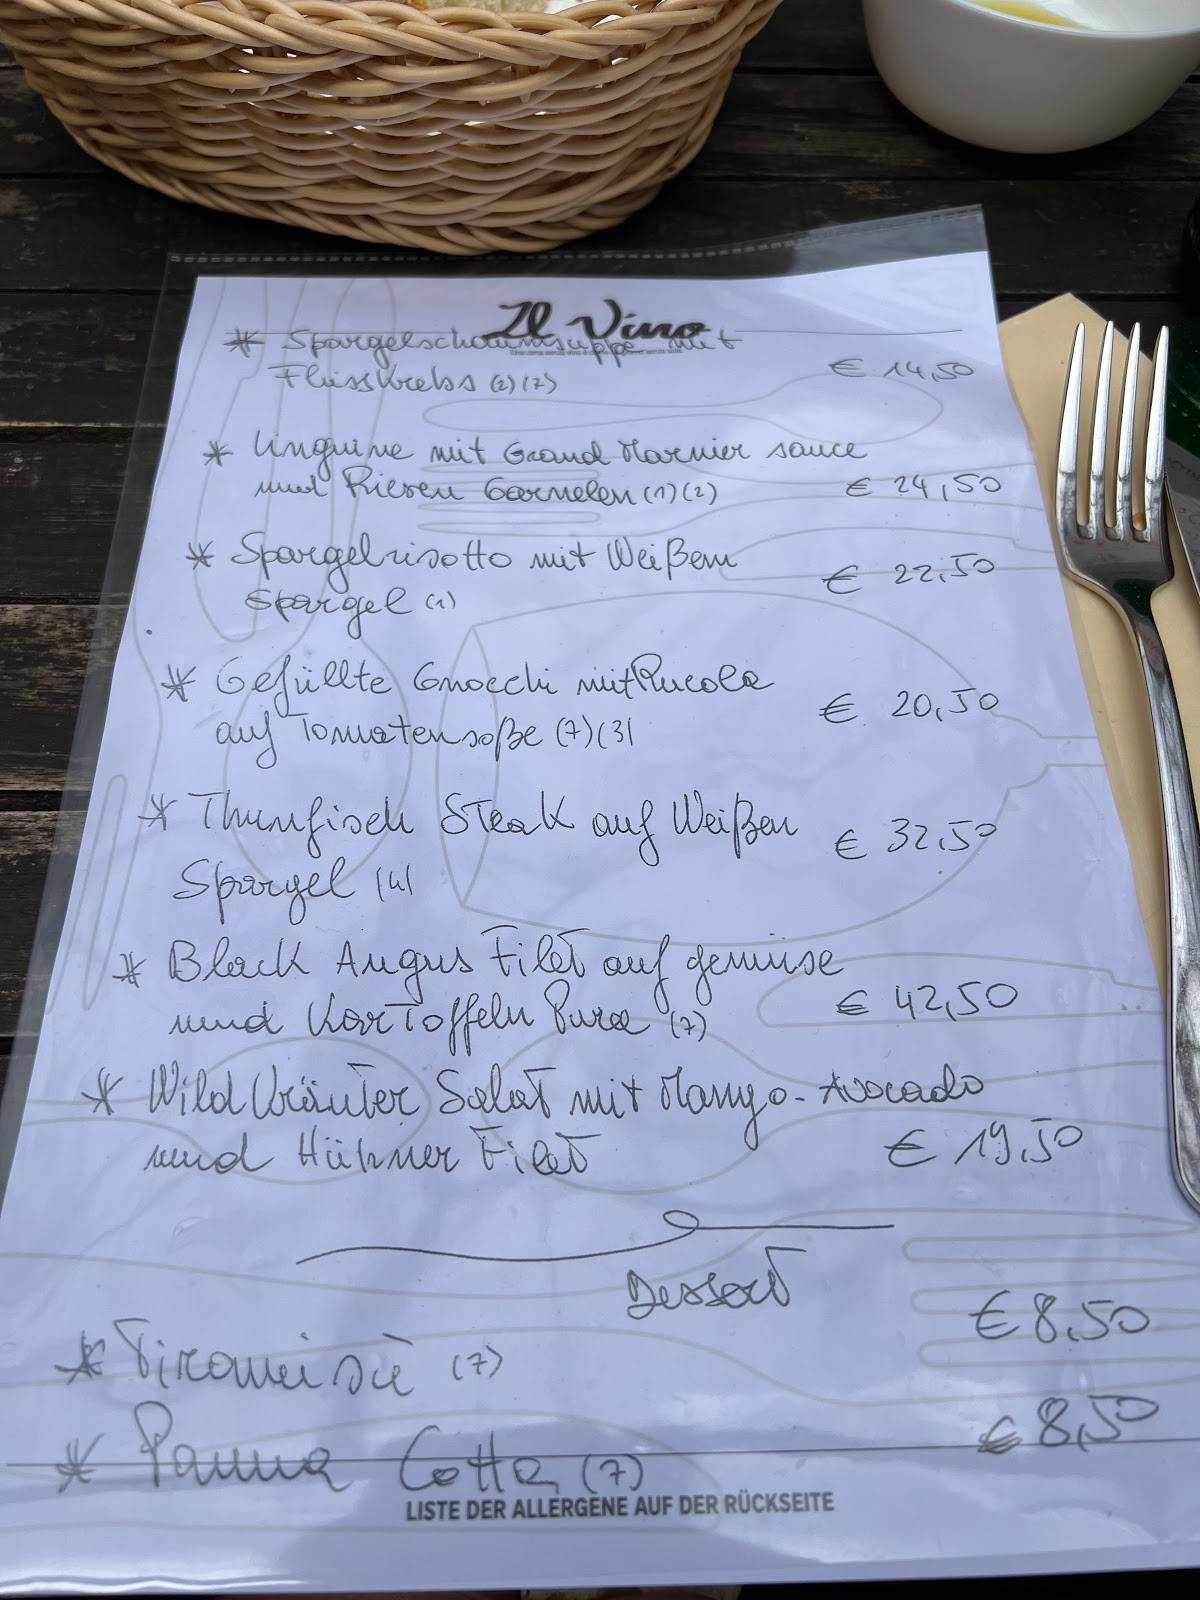 Il Vino
* Spargelschaumsuppe mit
Flusskrebs (2)(7) € 14,50
* Linguine mit Grand Marnier sauce
und Riesen Garnelen (1)(2) € 24,50
* Spargelrisotto mit Weißem
Spargel (1) € 22,50
* Gefüllte Gnocchi mit Rucola
auf Tomatensoße (7)(3) € 20,50
* Thunfisch Steak auf Weißen
Spargel (4) € 32,50
* Black Angus Filet auf gemüse
und Kartoffeln Pura (7) € 42,50
* Wild Kräuter Salat mit Mango-Avocado
und Hühner Filet € 19,50
Dessert
* Tiramisù (7) € 8,50
* Panna Cotta (7) € 8,50
LISTE DER ALLERGENE AUF DER RÜCKSEITE